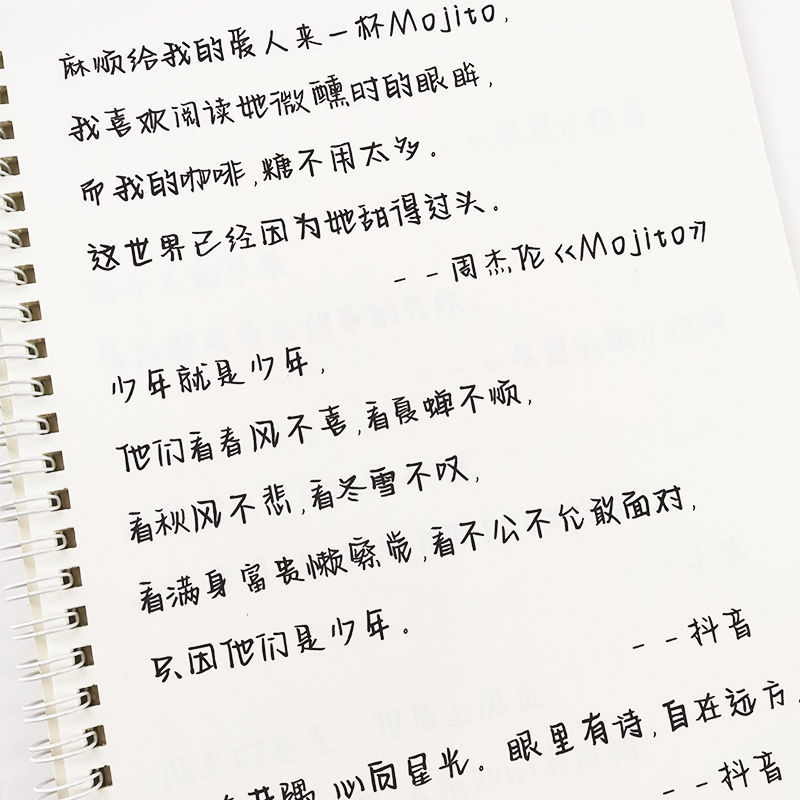 麻烦给我的爱人来一杯Mojito,
我喜欢阅读她微醺时的眼眸,
而我的咖啡,糖不用太多。
这世界已经因为她甜得过头。
--周杰伦《Mojito》
少年就是少年,
他们看春风不喜,看夏蝉不烦,
看秋风不悲,看冬雪不叹,
看满身富贵懒察觉,看不公不允敢面对,
只因他们是少年。
--抖音
心向星光。眼里有诗,自在远方。
--抖音